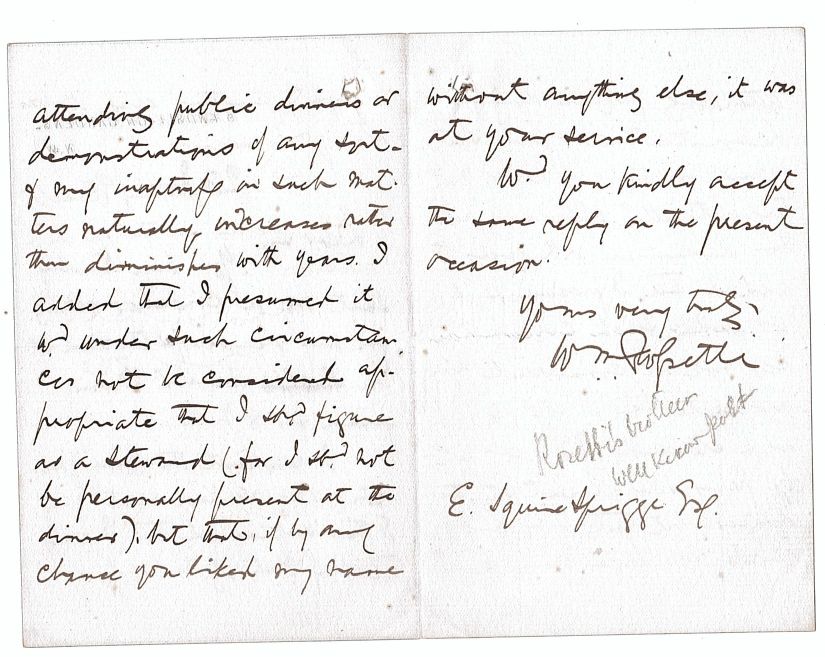 attending public dinners or
demonstrations of any sort –
& my inaptitude in such mat-
ters naturally increases rather
than diminishes with years. I
added that I presumed it
wd. under such circumstan-
ces not be considered ap-
propriate that I shd. figure
as a Steward (for I shd. not
be personally present at the
dinner), but that, if by any
chance you liked my name
without anything else, it was
at your service.
Wd. you kindly accept
the same reply on the present
occasion.
Yours very truly,
W. M. Rossetti
Rosettis brother
well known poet
E. Squire Sprigge Esq.